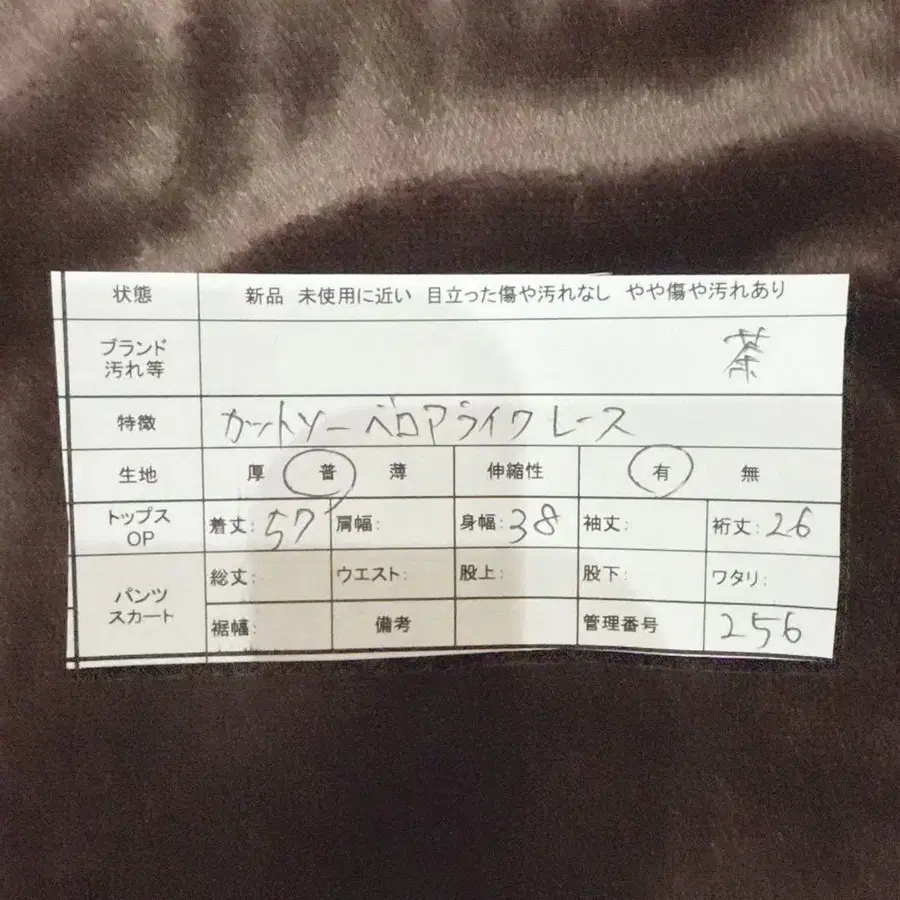 状態 新品 未使用に近い 目立った傷や汚れなし やや傷や汚れあり
ブランド
汚れ等 茶
特徴 カットソー ベロアライク レース
生地 厚 普 薄 伸縮性 有 無
トップス
OP 着丈: 57 肩幅: 身幅: 38 袖丈: 裄丈: 26
パンツ
スカート 総丈: ウエスト: 股上: 股下: ワタリ:
裾幅: 備考 管理番号 256